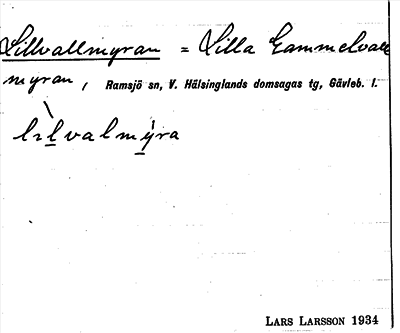 Lillvallmyran = Lilla Gammelvall
myran, Ramsjö sn, V. Hälsinglands domsagas tg, Gävleb. l.
LARS LARSSON 1934